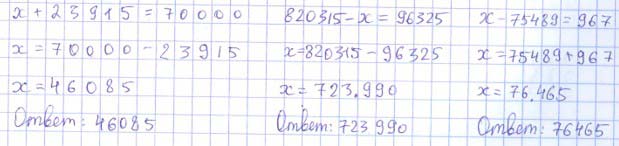 x + 23915 = 70000
x = 70000 - 23915
x = 46085
Ответ: 46085
820315 - x = 96325
x = 820315 - 96325
x = 723.990
Ответ: 723 990
x - 75489 = 967
x = 75489 + 967
x = 76.465
Ответ: 76465